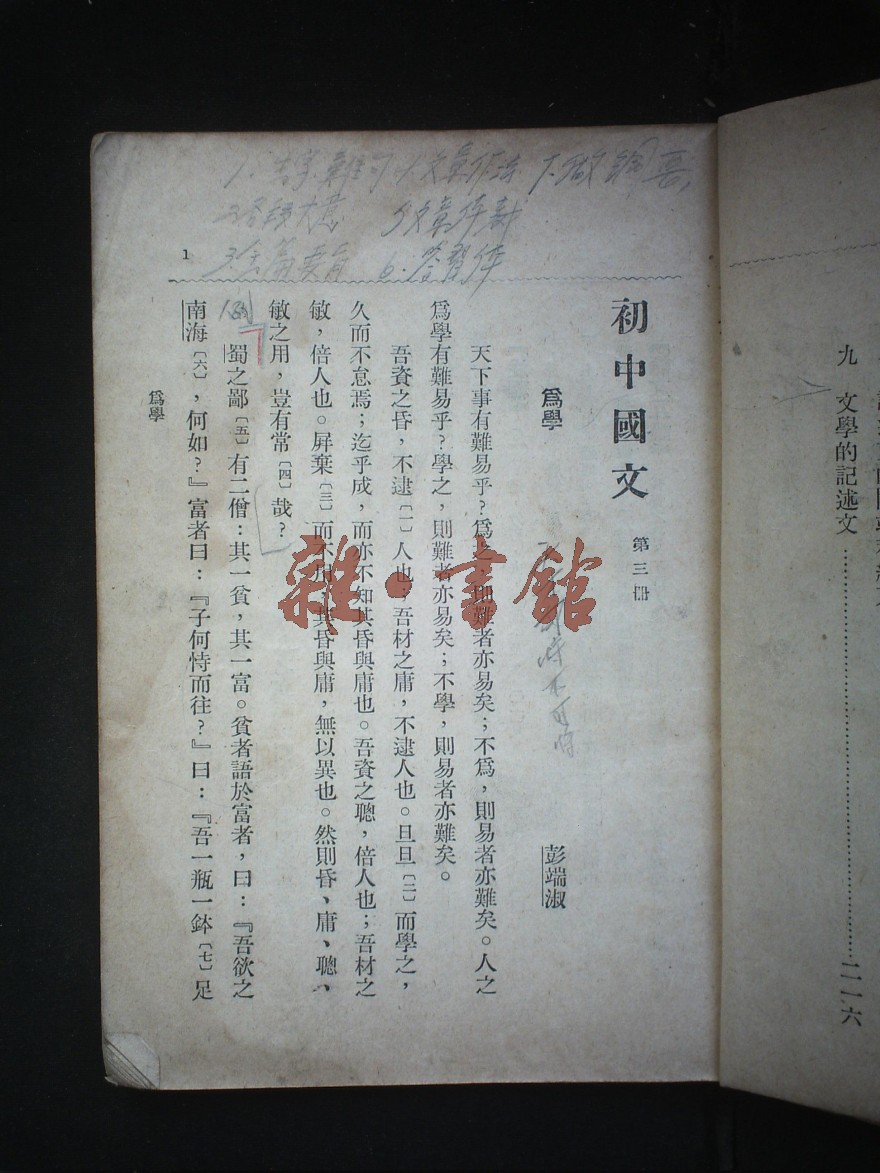 九　文學的記述文……二一六
初中國文　第三册
爲學
彭端淑
天下事有難易乎？爲之，則難者亦易矣；不爲，則易者亦難矣。人之
爲學有難易乎？學之，則難者亦易矣；不學，則易者亦難矣。
吾資之昏，不逮〔一〕人也，吾材之庸，不逮人也。旦旦〔二〕而學之，
久而不怠焉；迄乎成，而亦不知其昏與庸也。吾資之聰，倍人也；吾材之
敏，倍人也。屏棄〔三〕而不用，其昏與庸，無以異也。然則昏、庸、聰、
敏之用，豈有常〔四〕哉？
蜀之鄙〔五〕有二僧：其一貧，其一富。貧者語於富者，曰：『吾欲之
南海〔六〕，何如？』富者曰：『子何恃而往？』曰：『吾一瓶一鉢〔七〕足
爲學
1
雜·書館